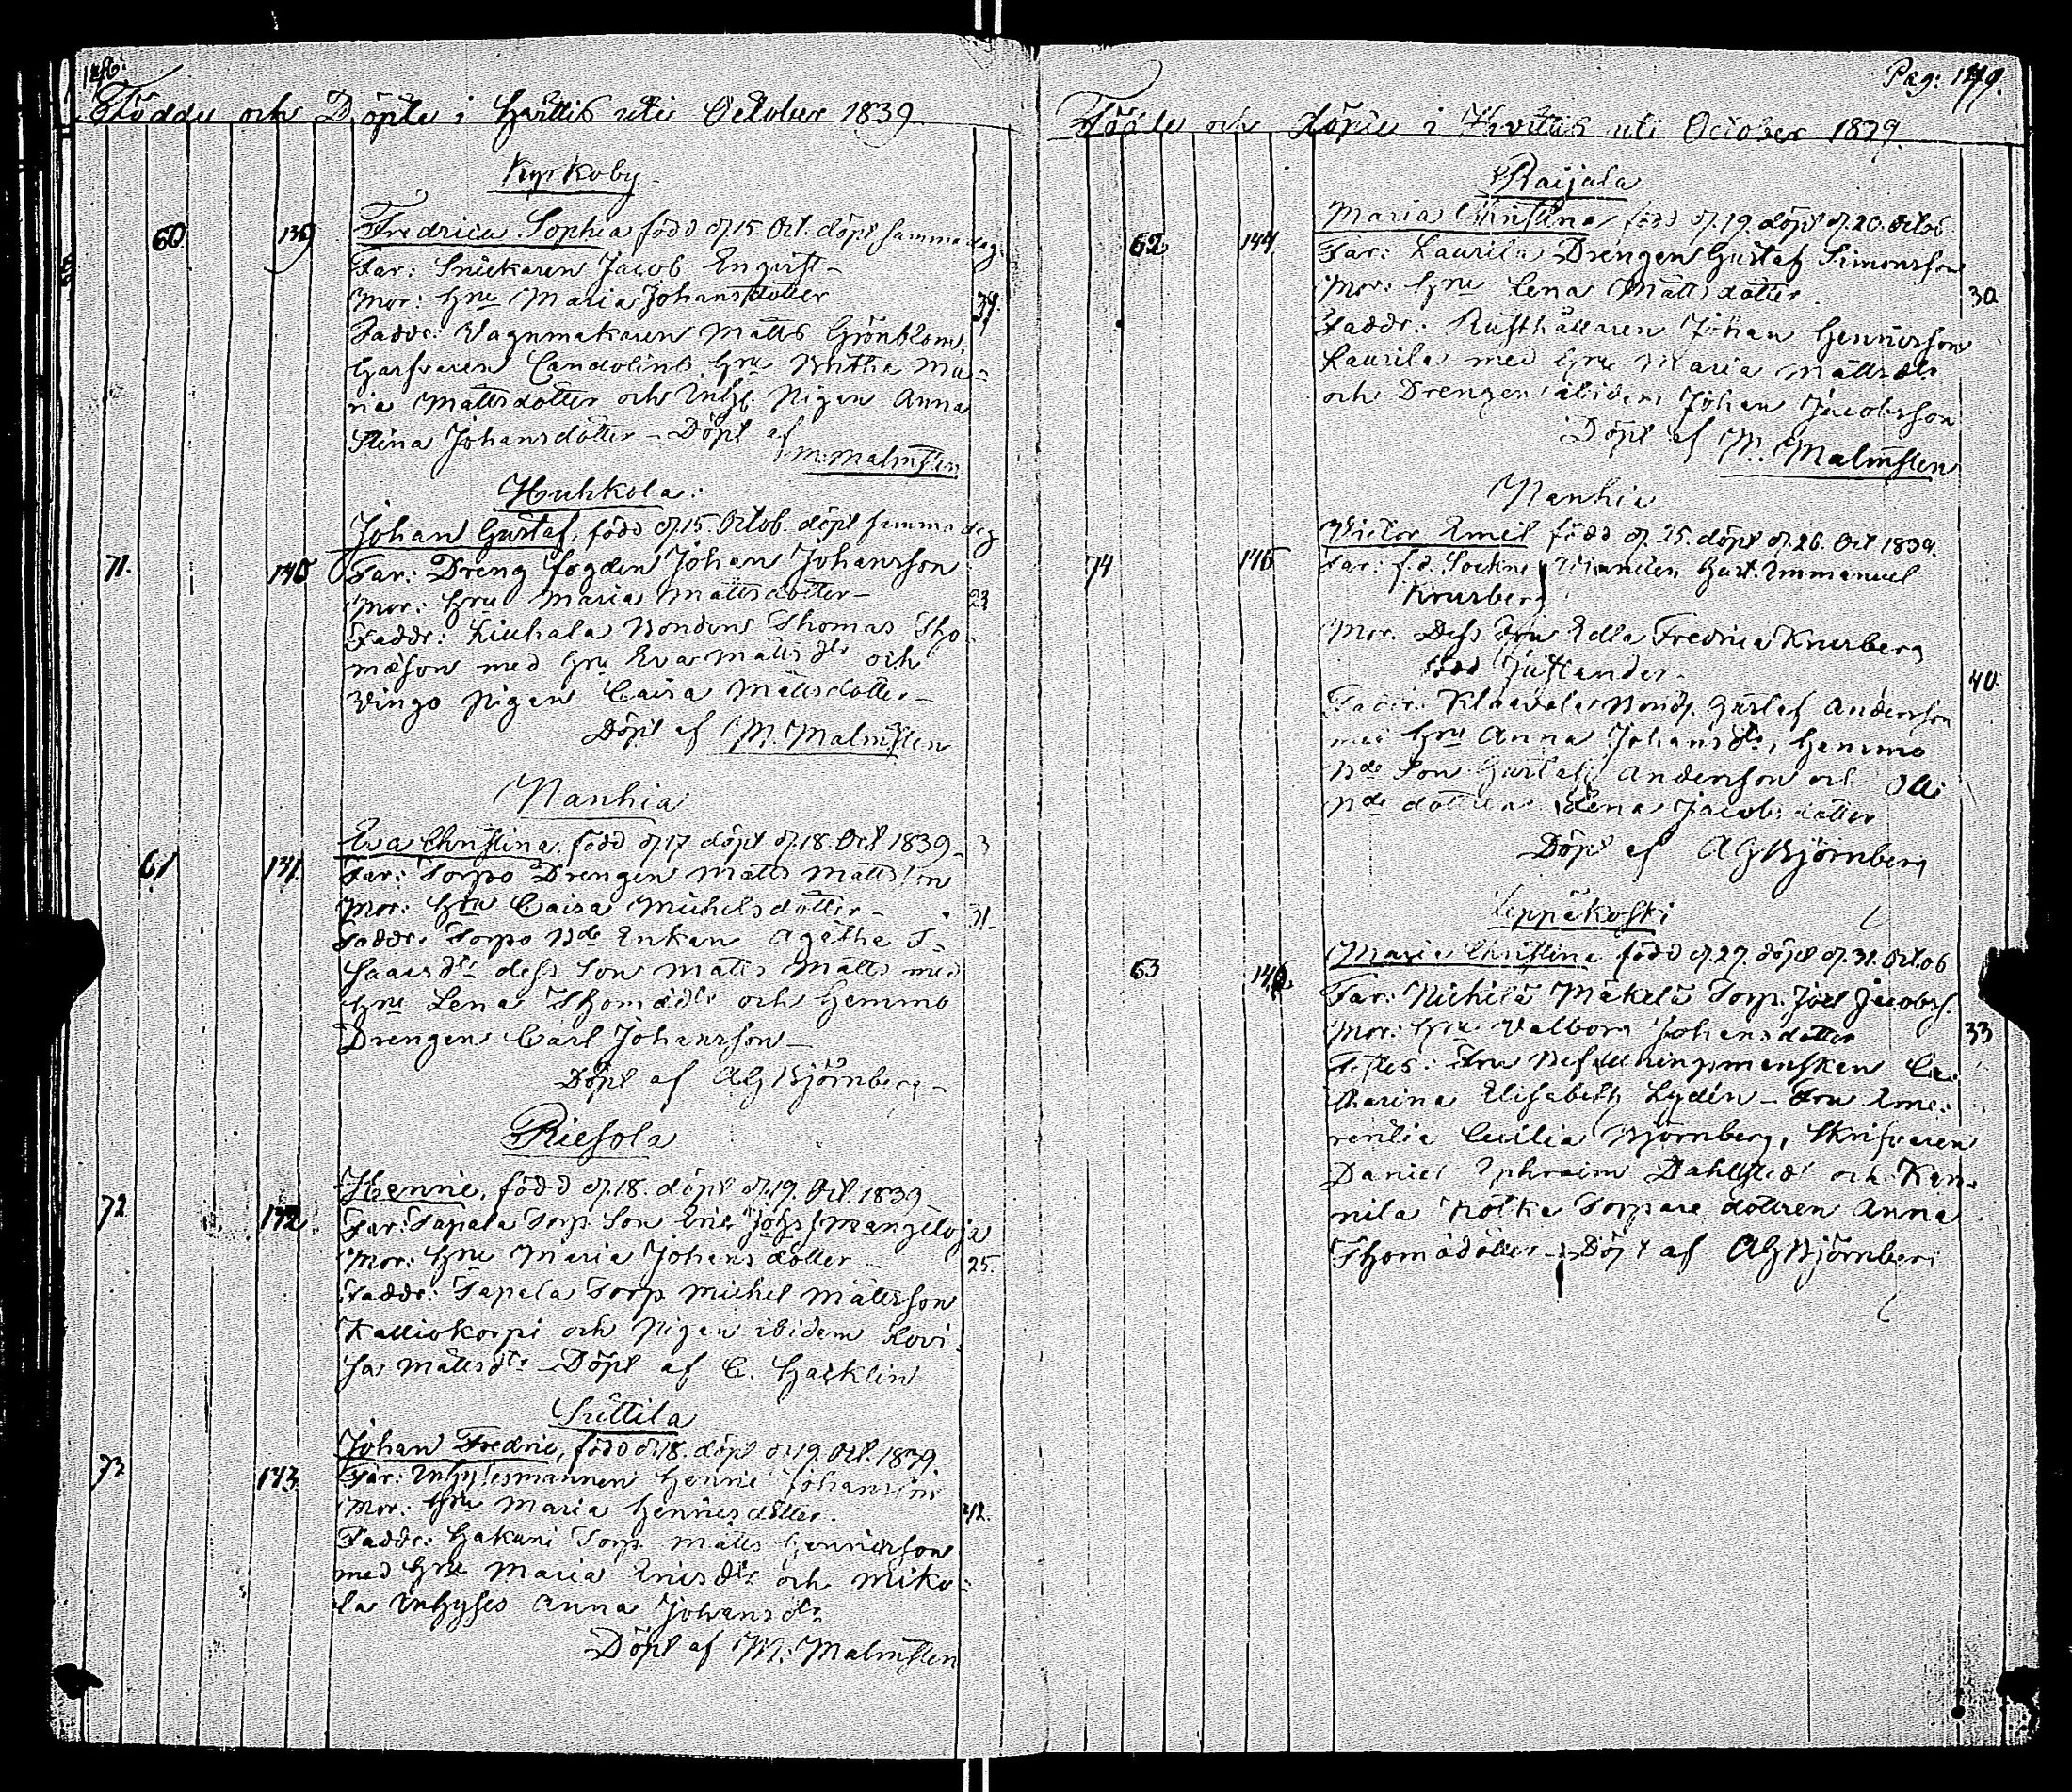 Födde och Döpte i Huittis uti October 1839
Kyrkoby
60 139 Fredrica Sophia född d. 15 Oct. döpt samma dag
Far: Snickaren Jacob Enqvist
Mor: Hru Maria Johansdotter 39.
Faddr: Vagnmakaren Matts Grönblom,
Garfvaren Candolins Hru Britha Ma=
ria Mattsdotter och Inhs Pigan Anna
Stina Johansdotter – Döpt af
M. Malmsten
Huhkola:
Johan Gustaf, född d. 15. Octob. döpt samma dag
71. 140 Far: Dreng fogden Johan Johansson
Mor: Hru Maria Mattsdotter – 23
Faddr: Liuhala Bondens Thomas Tho-
mæson med Hru Eva Matts dr och
Vingo Pigan Caisa Mattsdotter –
Döpt af M. Malmsten
Nanhia
Eva Christina, född d. 17 döpt d. 18. Oct 1839
61 141. Far: Torpo Drengen Matts Mattsson
Mor: Hru Caisa Michelsdotter – 31
Faddr: Torpo Bde Enkan Agatha I=
saacs dr dess Son Matts Matts med
Hru Lena Thomædr och Hemmo
Drengen Carl Johansson –
Döpt af AG Björnberg –
Riesola
Henric, född d. 18. döpt d. 19. Oct. 1839
72 142 Far: Tapala Torp. Son Eric Johs
Mor: Hru Maria Johansdotter 25.
Faddr: Tapala Torp Michel Mattsson
Kalliokorpi och Pigan ibidem Lovi
sa Mattsdr – Döpt af C. Hacklin
Suttila
Johan Fredric, född d. 18. döpt d. 19. Oct. 1839.
73 143 Far: Inhysesmannen Henric Johansson
Mor: Hru Maria Henricsdotter. 42.
Faddr: Hakuni Torp. Matts Henricsson
med Hru Maria Ericsdr och Miko=
la Inhyses Anna Johansdr
Döpt af M. Malmsten
Pag: 149.
Födde och döpte i Hvittis uti October 1839.
Raijala
Maria Christina, född d. 19. döpt d. 20. Octob
62 144 Far: Laurila Drengen Gustaf Simonsson
Mor: Hru Lena Mattsdotter. 30
Faddr: Rusthållaren Johan Henricsson
Laurila med Hru Maria Mattsdr
och Drengen ibidem Johan Jacobsson
Döpt af M. Malmsten
Nanhia
Victor Emil född d. 25. döpt d. 26. Oct 1839.
74 145 Far: f.d. Sockne Gust. Immanuel
Knusberg
Mor. Dess Fru Edla Fredrica Knusberg
född Justander. 40.
Faddr. Bond. Gustaf Andersson
med Hru Anna Johansdr, Hemmo
Bde Son Gustaf Andersson och Olli
Bde dottren Lena Jacobsdotter
Döpt af AG Björnberg
Leppäkoski
Maria Christina född d. 27. döpt d. 31. Octob
63 146 Far: Nickilä Mäkelä Torp. Joel Jacobss.
Mor: Hru Valborg Johansdotter 33
Testes: Fru Befallningsmanskan Ca=
tharina Elisabeth Lydén – Fru Eme=
rentia Cecilia Björnberg, Skrifvaren
Daniel Ephraim Dahlstedt och Kan=
nila Kotka Torpare dottren Anna
Thomædotter – Döpt af AG Björnberg